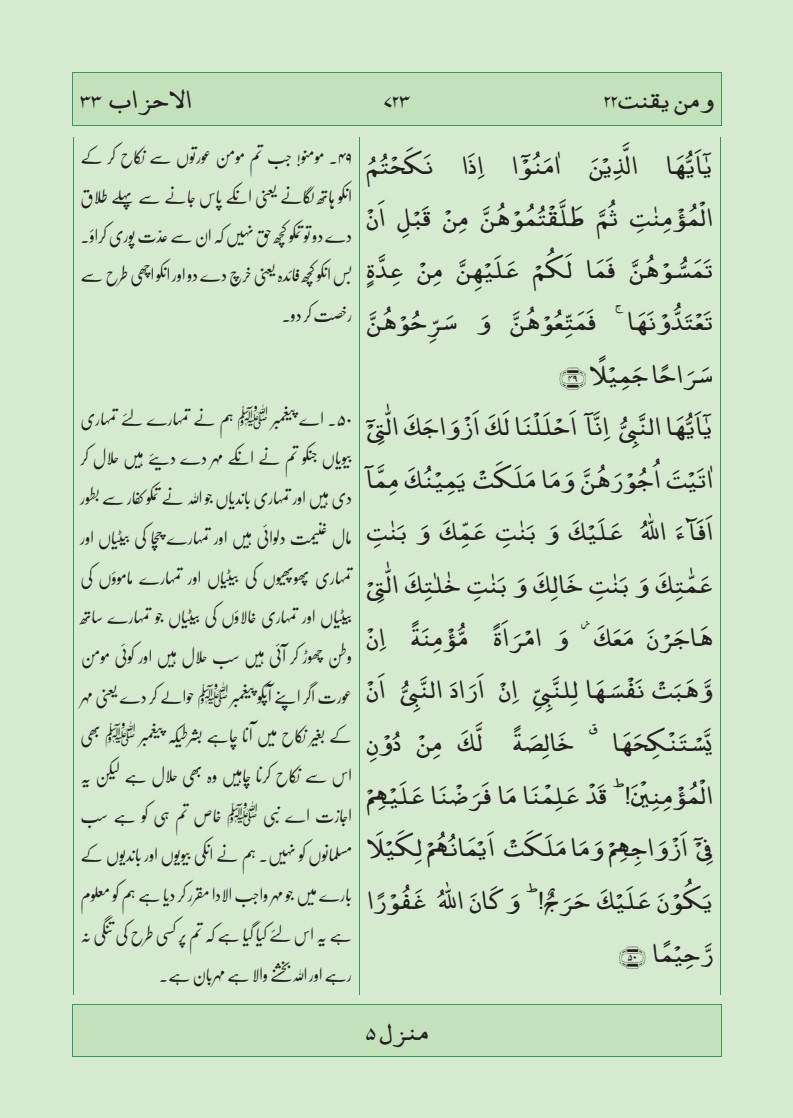 ومن یقنت۲۲
۷۲۳
الاحزاب ۳۳
یٰۤاَیُّهَا الَّذِیْنَ اٰمَنُوْۤا اِذَا نَكَحْتُمُ
الْمُؤْمِنٰتِ ثُمَّ طَلَّقْتُمُوْهُنَّ مِنْ قَبْلِ اَنْ
تَمَسُّوْهُنَّ فَمَا لَكُمْ عَلَیْهِنَّ مِنْ عِدَّةٍ
تَعْتَدُّوْنَهَا ۚ فَمَتِّعُوْهُنَّ وَ سَرِّحُوْهُنَّ
سَرَاحًا جَمِیْلًا ﴿۴۹﴾
یٰۤاَیُّهَا النَّبِیُّ اِنَّاۤ اَحْلَلْنَا لَكَ اَزْوَاجَكَ الّٰتِیْۤ
اٰتَیْتَ اُجُوْرَهُنَّ وَ مَا مَلَكَتْ یَمِیْنُكَ مِمَّاۤ
اَفَآءَ اللّٰهُ عَلَیْكَ وَ بَنٰتِ عَمِّكَ وَ بَنٰتِ
عَمّٰتِكَ وَ بَنٰتِ خَالِكَ وَ بَنٰتِ خٰلٰتِكَ الّٰتِیْ
هَاجَرْنَ مَعَكَ ؗ وَ امْرَاَةً مُّؤْمِنَةً اِنْ
وَّهَبَتْ نَفْسَهَا لِلنَّبِیِّ اِنْ اَرَادَ النَّبِیُّ اَنْ
یَّسْتَنْكِحَهَا ۗ خَالِصَةً لَّكَ مِنْ دُوْنِ
الْمُؤْمِنِیْنَ! ؕ قَدْ عَلِمْنَا مَا فَرَضْنَا عَلَیْهِمْ
فِیْۤ اَزْوَاجِهِمْ وَ مَا مَلَكَتْ اَیْمَانُهُمْ لِكَیْلَا
یَكُوْنَ عَلَیْكَ حَرَجٌ! ؕ وَ كَانَ اللّٰهُ غَفُوْرًا
رَّحِیْمًا ﴿۵۰﴾
۴۹۔ مومنو! جب تم مومن عورتوں سے نکاح کر کے
انکو ہاتھ لگانے یعنی انکے پاس جانے سے پہلے طلاق
دے دو تو تمکو کچھ حق نہیں کہ ان سے عدّت پوری کراؤ۔
بس انکو کچھ فائدہ یعنی خرچ دے دو اور انکو اچھی طرح سے
رخصت کر دو۔
۵۰۔ اے پیغمبر ﷺ ہم نے تمہارے لئے تمہاری
بیویاں جنکو تم نے انکے مہر دے دیئے ہیں حلال کر
دی ہیں اور تمہاری باندیاں جو اللہ نے تمکو کفار سے بطور
مال غنیمت دلوائی ہیں اور تمہارے چچا کی بیٹیاں اور
تمہاری پھوپھیوں کی بیٹیاں اور تمہارے ماموؤں کی
بیٹیاں اور تمہاری خالاؤں کی بیٹیاں جو تمہارے ساتھ
وطن چھوڑ کر آئی ہیں سب حلال ہیں اور کوئی مومن
عورت اگر اپنے آپکو پیغمبر ﷺ حوالے کر دے یعنی مہر
کے بغیر نکاح میں آنا چاہے بشرطیکہ پیغمبر ﷺ بھی
اس سے نکاح کرنا چاہیں وہ بھی حلال ہے لیکن یہ
اجازت اے نبی ﷺ خاص تم ہی کو ہے سب
مسلمانوں کو نہیں۔ ہم نے انکی بیویوں اور باندیوں کے
بارے میں جو مہر واجب الادا مقرر کر دیا ہے ہم کو معلوم
ہے یہ اس لئے کیا گیا ہے کہ تم پر کسی طرح کی تنگی نہ
رہے اور اللہ بخشنے والا ہے مہربان ہے۔
منزل ۵